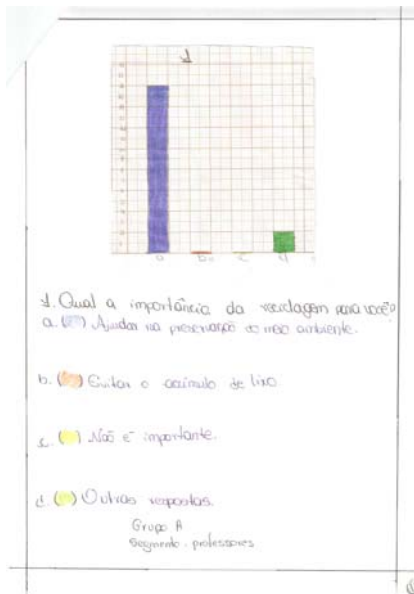 1
a b c d
1. Qual a importância da reciclagem para você?
a. ( ) Ajudar na preservação do meio ambiente.
b. ( ) Evitar o acúmulo de lixo.
c. ( ) Não é importante.
d. ( ) Outras respostas.
Grupo A
Segmento: professores